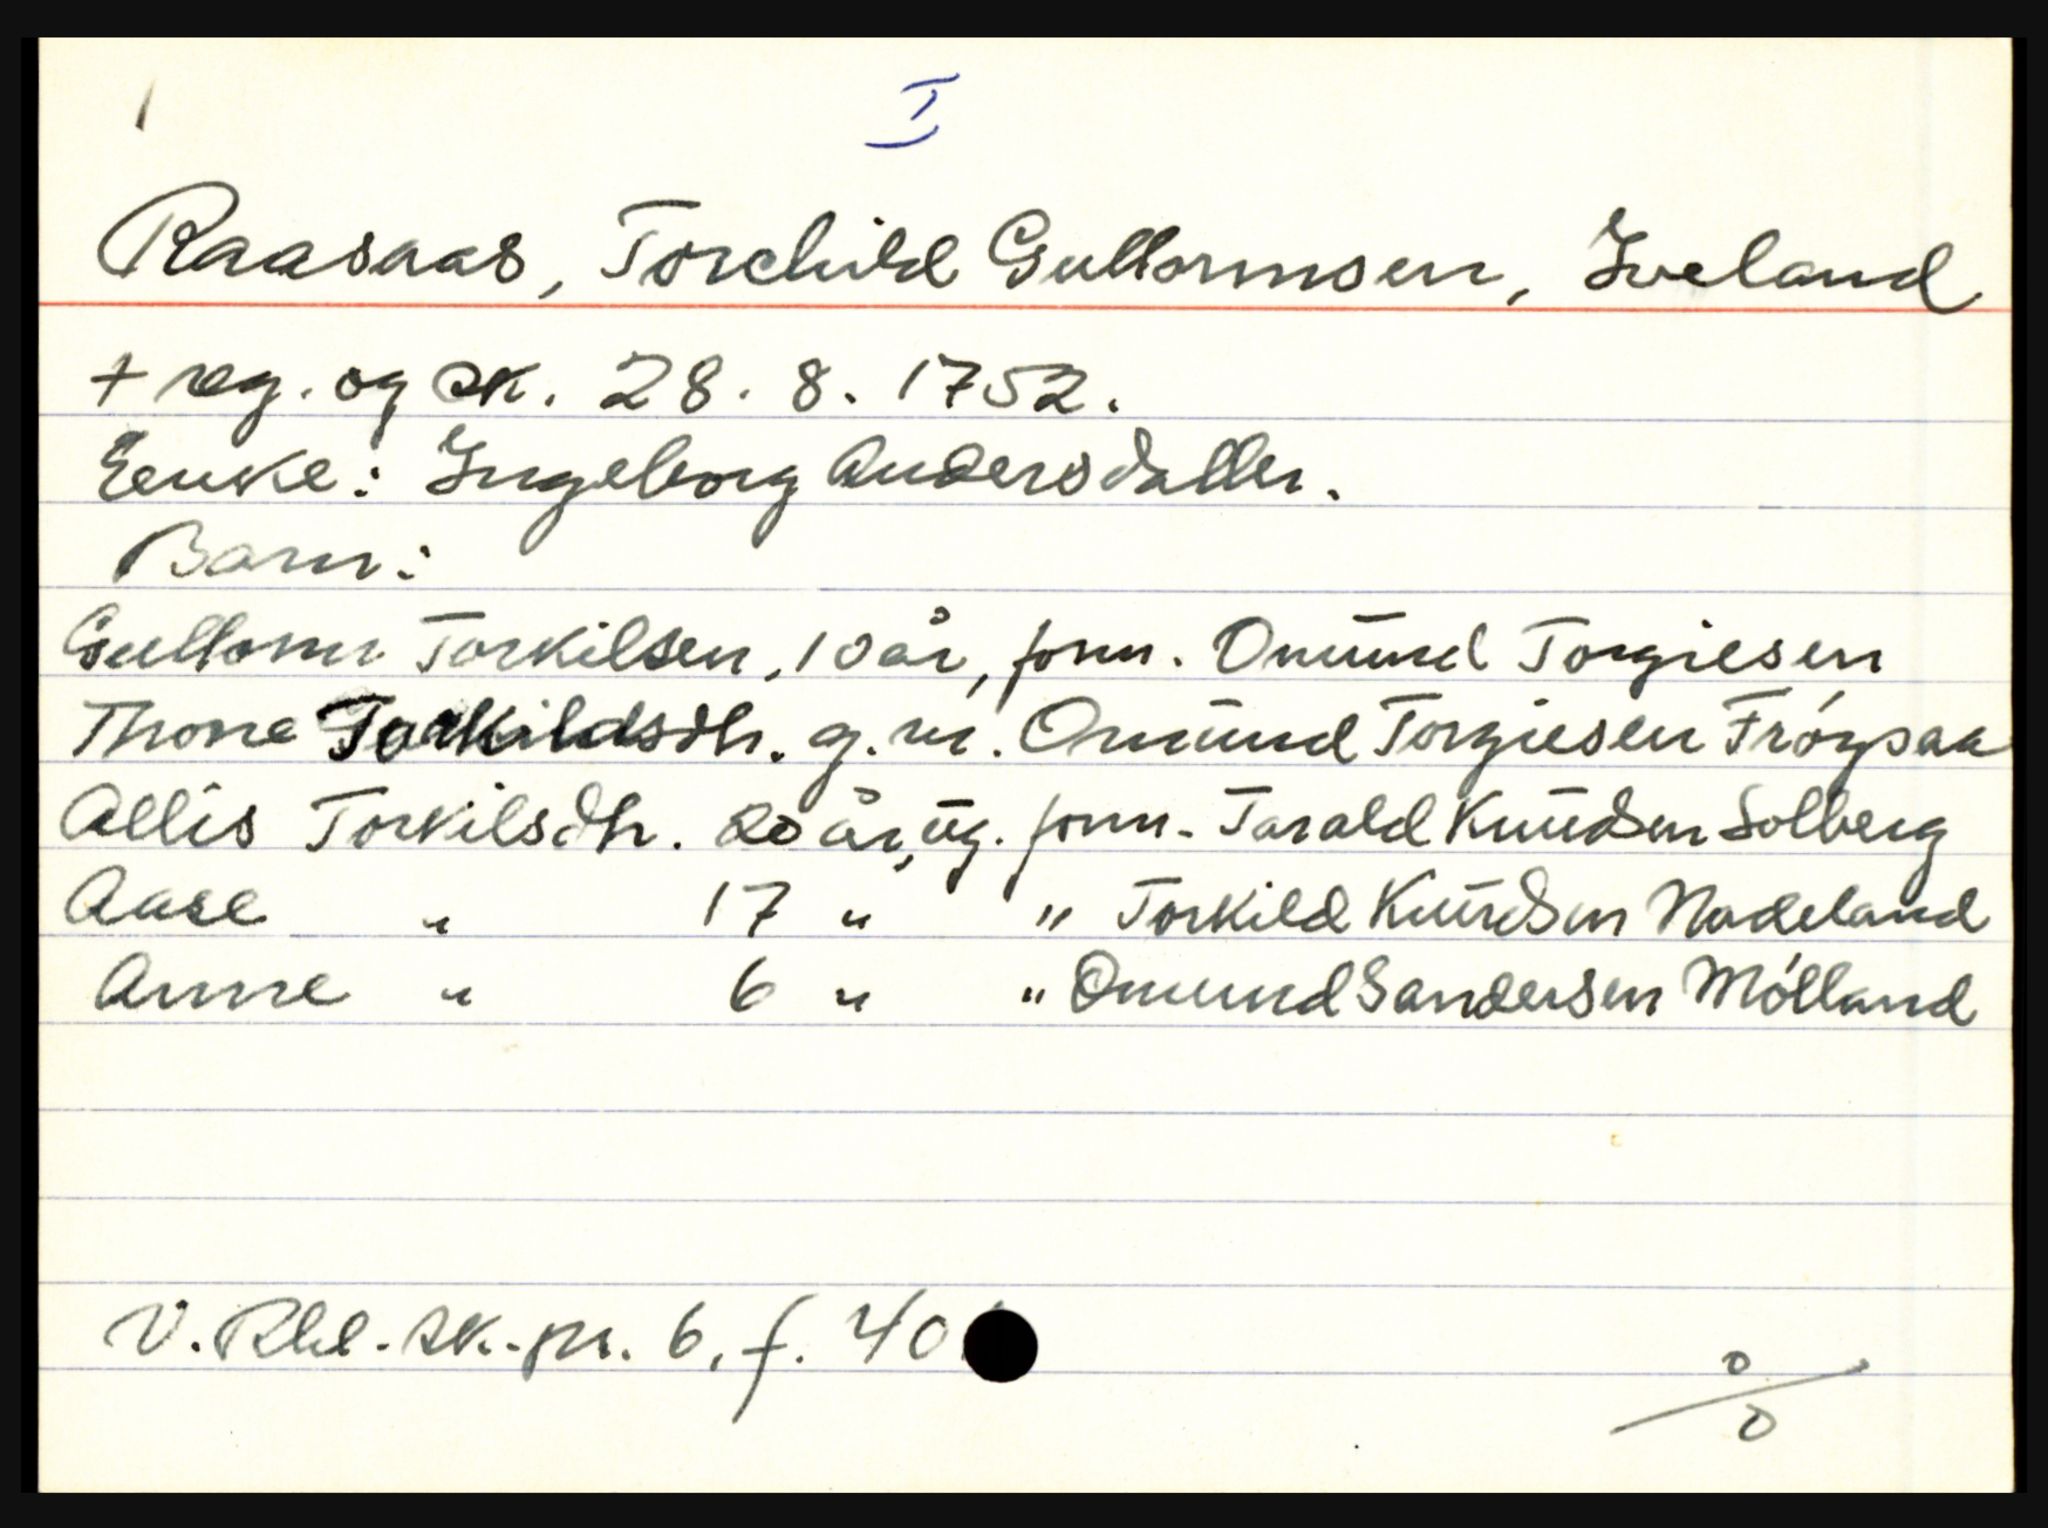 I
Raasaas, Torchild Guttormsen, Iveland
+ reg. og sk. 28. 8. 1752.
Encke: Ingeborg Andersdatter.
Barn:
Guttorm Torkilsen, 10 år, form. Omünd Torgiesen
Thone Torkildsdtr. g. m. Omünd Torgiesen Fróysaa
Allis Torkilsdtr. 20 år, üg. form. Tarald Knüdsen Solberg
Aase " 17 " " Torkild Knüdsen Nadeland
Anne " 6 " " Omund Sandersen Mólland
V. Rbl. sk. pr. 6, f. 40
0/0